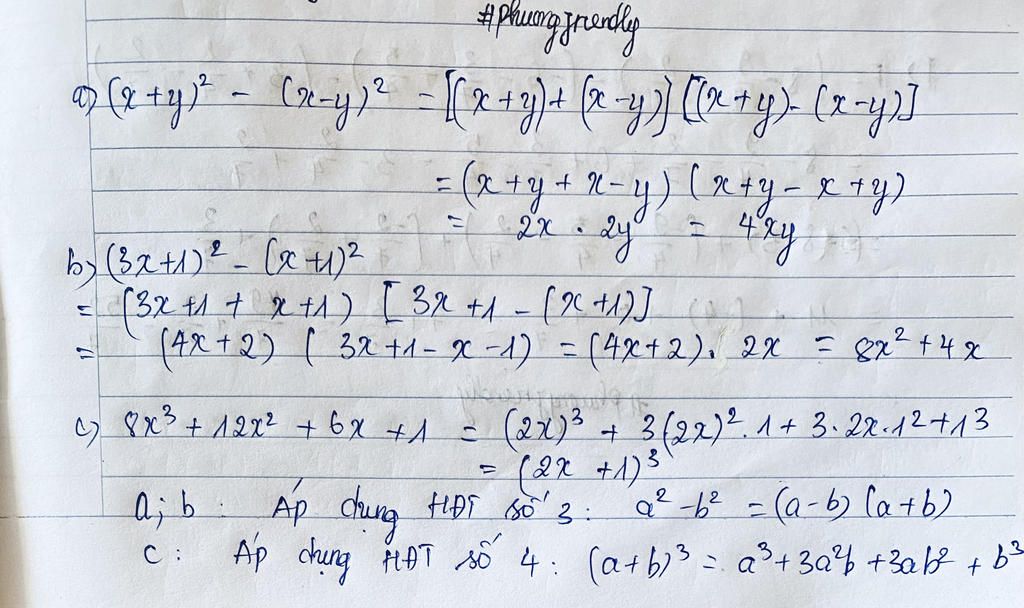 #phuongfriendly
a) (x+y)² - (x-y)² = [(x+y)+(x-y)] [(x+y)-(x-y)]
= (x+y+x-y) (x+y-x+y)
= 2x . 2y = 4xy
b) (3x+1)² - (x+1)²
= (3x+1+x+1) [3x+1-(x+1)]
= (4x+2) (3x+1-x-1) = (4x+2). 2x = 8x²+4x
c) 8x³+12x²+6x+1 = (2x)³+3(2x)².1+3.2x.1²+1³
= (2x+1)³
a; b : Áp dụng HĐT số 3: a²-b² = (a-b)(a+b)
c : Áp dụng HĐT số 4: (a+b)³ = a³+3a²b+3ab²+b³